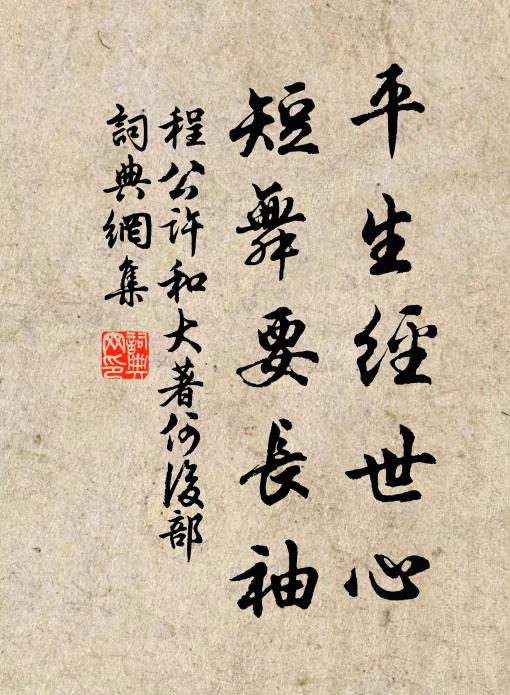 平生經世心
短舞要長袖
程公許和大著何後部
詞典網集
詞典網印